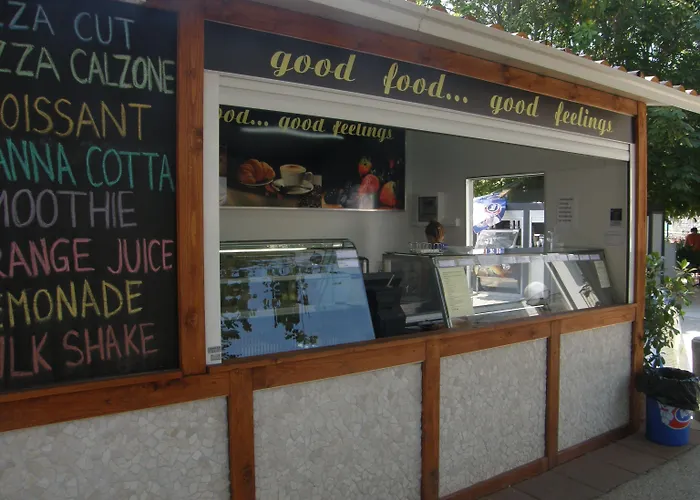 ZZA CUT
ZZA CALZONE
OISSANT
ANNA COTTA
MOOTHIE
RANGE JUICE
EMONADE
ILK SHAKE
good food... good feelings
ood... good feelings